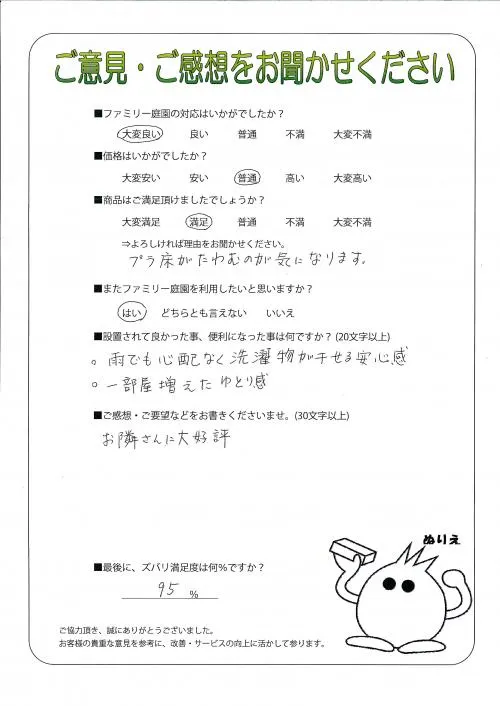 ご意見・ご感想をお聞かせください
■ファミリー庭園の対応はいかがでしたか？
大変良い 良い 普通 不満 大変不満
■価格はいかがでしたか？
大変安い 安い 普通 高い 大変高い
■商品はご満足頂けましたでしょうか？
大変満足 満足 普通 不満 大変不満
⇒よろしければ理由をお聞かせください。
プラ床がたわむのが気になります。
■またファミリー庭園を利用したいと思いますか？
はい どちらとも言えない いいえ
■設置されて良かった事、便利になった事は何ですか？(20文字以上)
。雨でも心配なく洗濯物が干せる安心感
。一部屋増えたゆとり感
■ご感想・ご要望などをお書きくださいませ。(30文字以上)
お隣さんに大好評
ぬりえ
■最後に、ズバリ満足度は何%ですか？
95 %
ご協力頂き、誠にありがとうございました。
お客様の貴重な意見を参考に、改善・サービスの向上に活かして参ります。